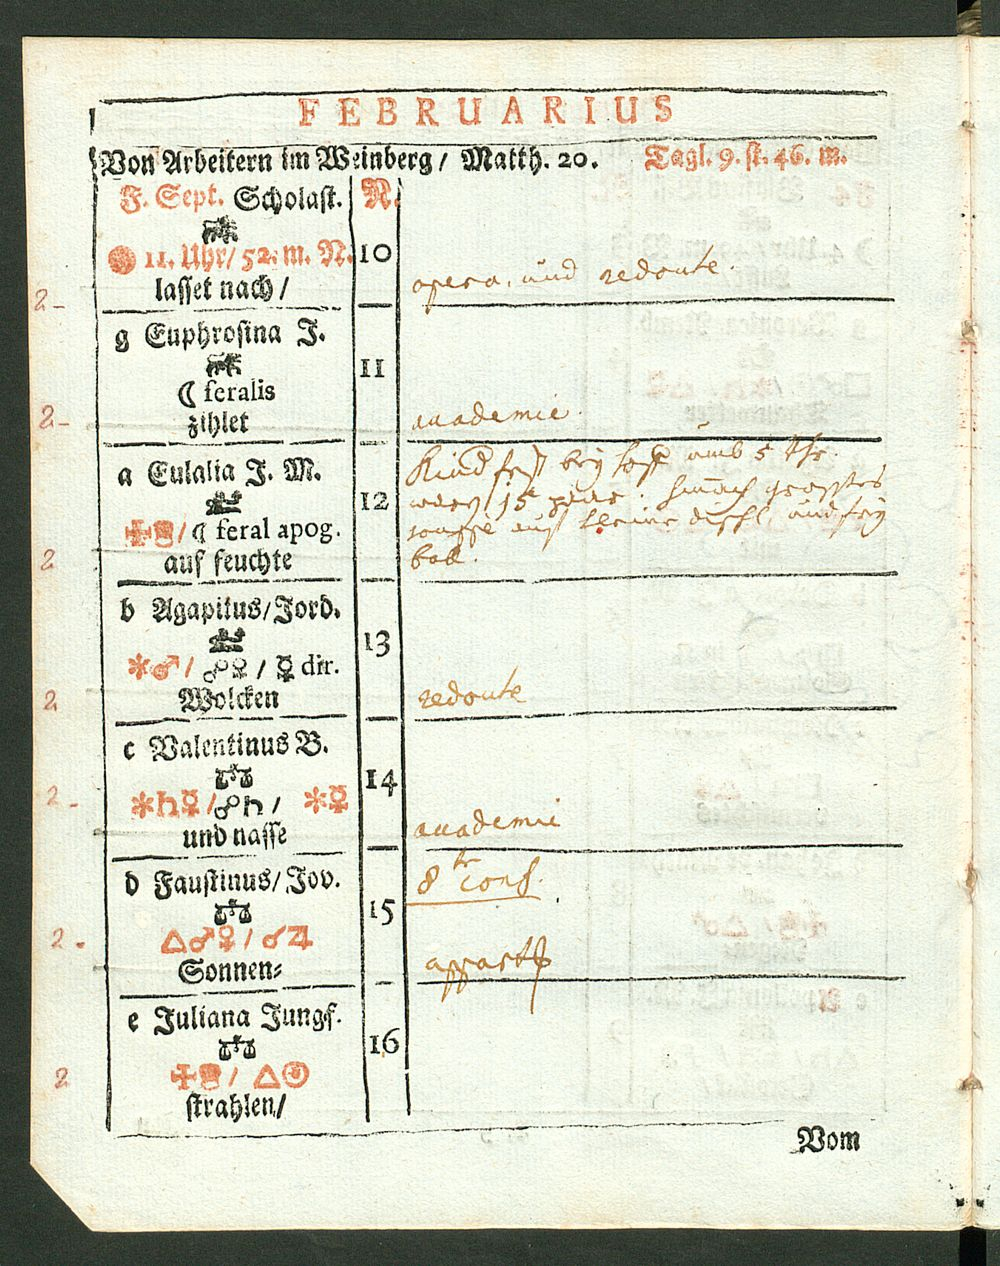 FEBRUARIUS
Von Arbeitern im Weinberg / Matth. 20. Tagl. 9. st. 46. m.
F. Sept. Scholast. N.
11. Uhr / 52. m. N. 10
lasset nach /
opera, und redoute
2
g Euphrosina J.
11
☾ feralis
zihlet
academie.
2
a Eulalia J. M.
12
/ ☾ feral apog.
auf feuchte
Kind bey umb 5 Uhr.
15
ball.
2
b Agapitus / Jord.
13
✶♂ / ☍♀ / ☿ dir.
Wolcken
redoute
2
c Valentinus B.
14
✶♄☿ / ☍♄ / ✶☿
und nasse
academie
2
d Faustinus / Jov.
15
△♂♀ / ☌♃
Sonnen=
8te conf.
appart
2
e Juliana Jungf.
16
/ △☉
strahlen /
2
Vom